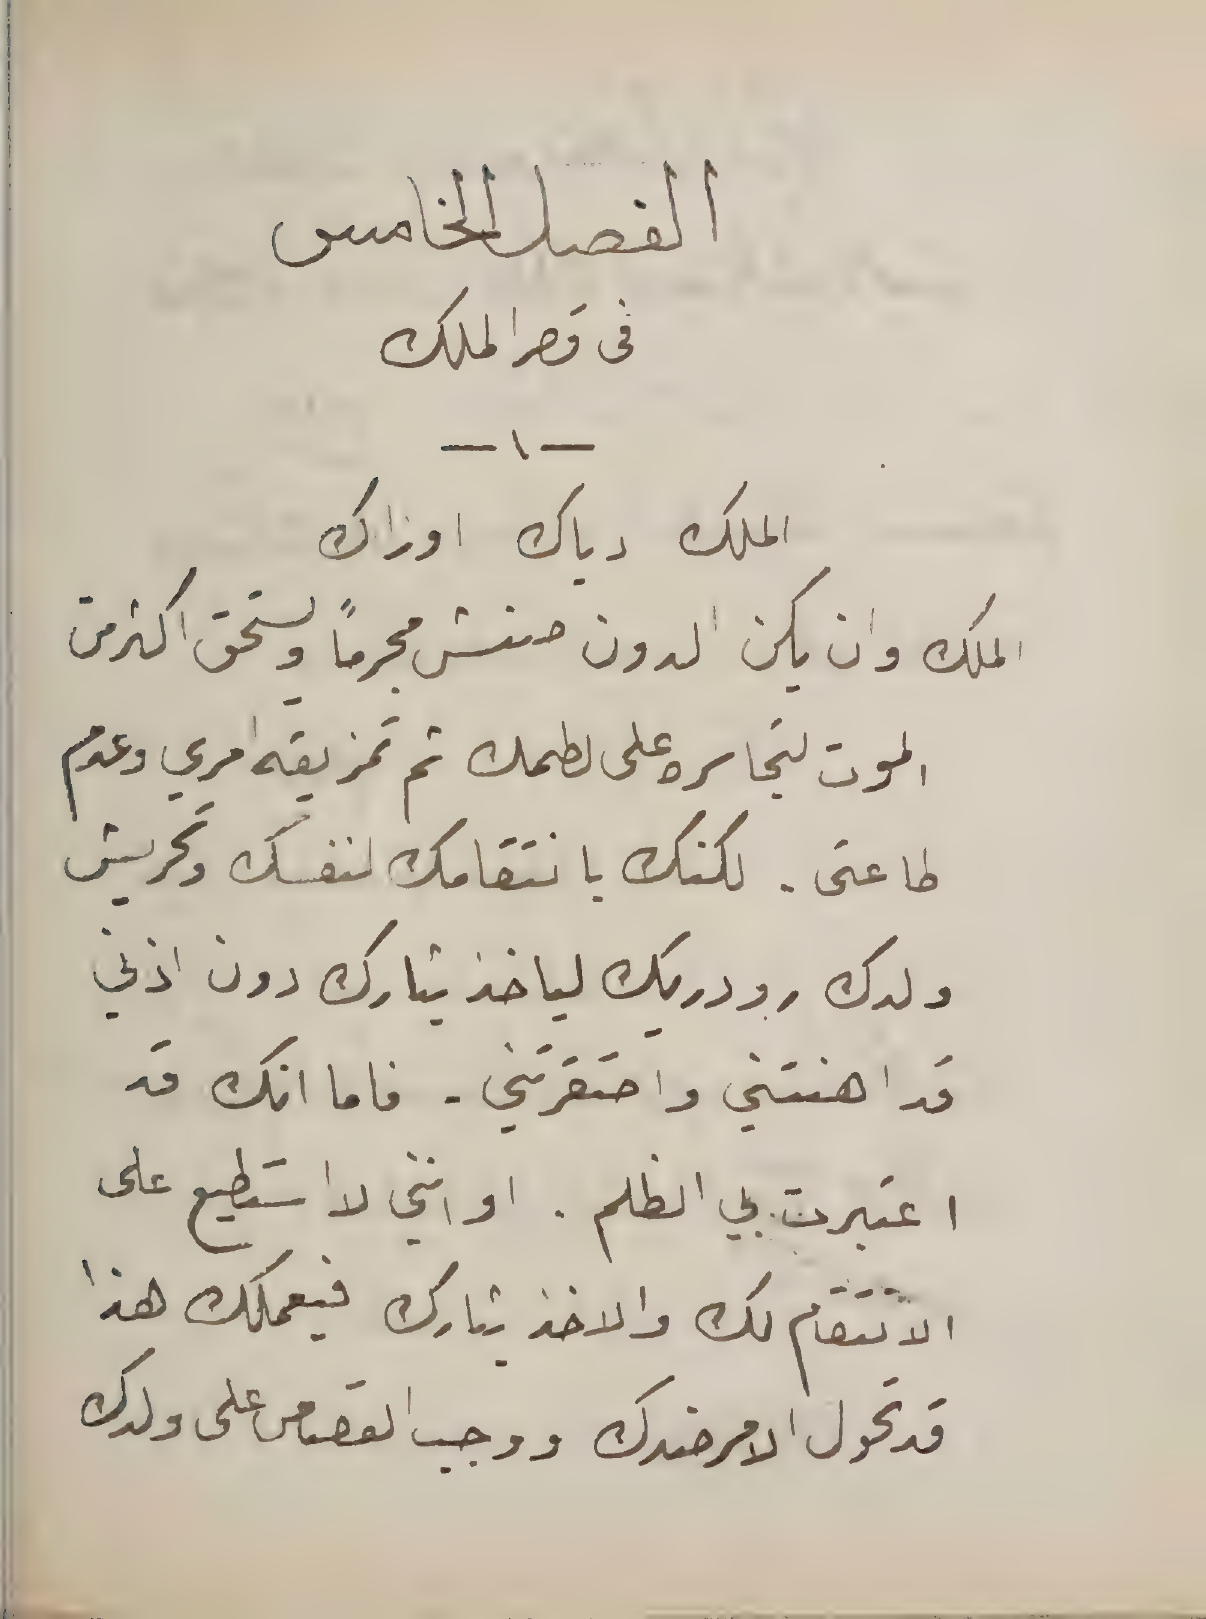 الفصل الخامس
فى قصر الملك
— ١ —
الملك دياك اوزاك
الملك وان يكن الدون صنتش مجرماً ويستحق اكثر من
الموت لتجاسره على لطمك ثم تمزيقه امري وعدم
طاعتى . لكنك بانتقامك لنفسك وتحريش
ولدك رودريك لياخذ بثارك دون اذني
قد اهنتني واحتقرتني . فاما انك قد
اعتبرت بي الظلم . او انني لا استطيع على
الانتقام لك والاخذ بثارك فبعملك هذا
قد تحول الامر ضدك ووجب القصاص على ولدك